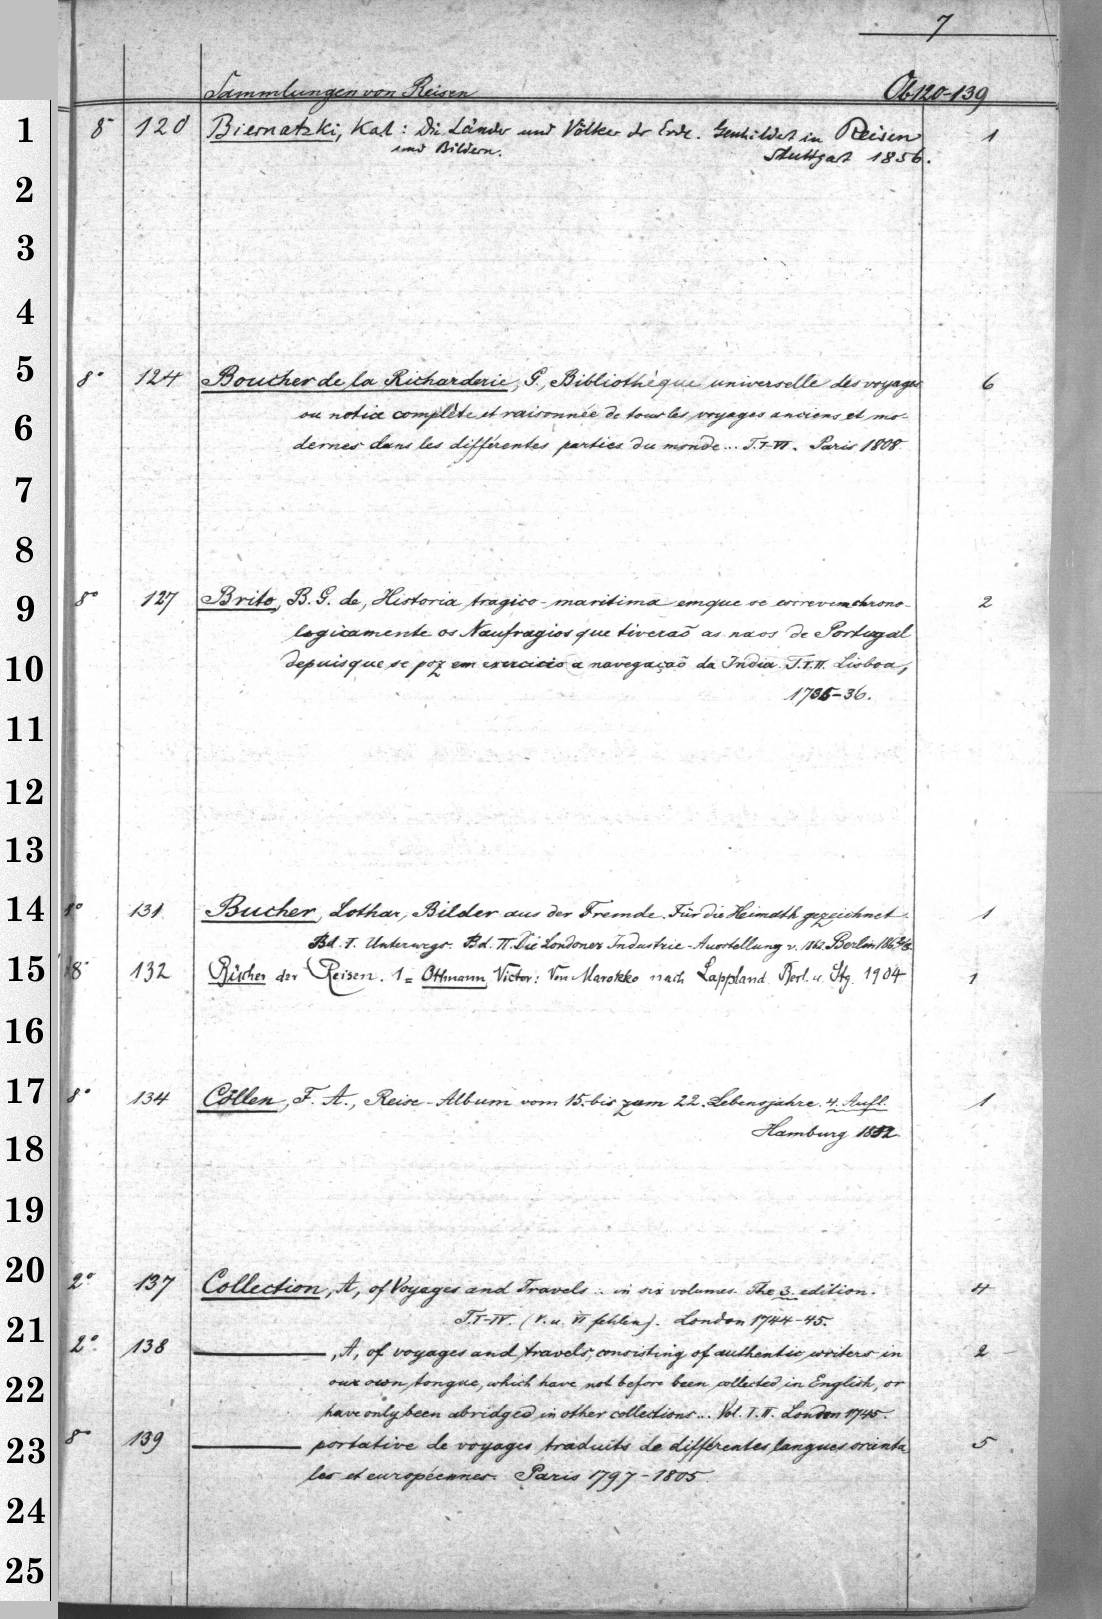 7
Sammlungen von Reisen Ob 120-139
1 8° 120 Biernatzki, Karl: Die Länder und Völker der Erde. Geschildert in Reisen 1
und Bildern. Stuttgart 1856.
2
3
4
5 8° 124 Boucher de la Richarderie, G., Bibliothèque universelle des voyages 6
ou notice complète et raisonnée de tous les voyages anciens et mo-
6
dernes dans les différentes parties du monde... T.I-VI. Paris 1808.
7
8
9 8° 127 Brito, B. G. de, Historia tragico-maritima em que se escrevem chrono- 2
logicamente os Naufragios que tiveraõ as naos de Portugal
10 depuis que se poz em exercicio a navegaçaõ da India. T.I.II. Lisboa,
1735-36.
11
12
13
14 8° 131 Bucher, Lothar, Bilder aus der Fremde. Für die Heimath gezeichnet. 1
Bd. I. Unterwegs. Bd. II. Die Londoner Industrie-Ausstellung v. 1862. Berlin 1862/3.
15 8° 132 Bücher der Reisen. 1 = Ottmann, Victor: Von Marokko nach Lappland. Berl. u. Stg. 1904 1
16
17 8° 134 Cöllen, F. A., Reise-Album vom 15. bis zum 22. Lebensjahre. 4. Aufl. 1
Hamburg 1852
18
19
20 2° 137 Collection, A, of Voyages and Travels .. in six volumes. The 3. edition. 4
21 T.I-IV. (V. u. VI fehlen). London 1744-45.
2° 138 ———, A, of voyages and travels, consisting of authentic writers in 2
22 our own tongue, which have not before been collected in English, or
have only been abridged in other collections... Vol. I. II. London 1745.
23 8° 139 ——— portative de voyages traduits de différentes langues orienta 5
les et européennes. Paris 1797-1805.
24
25